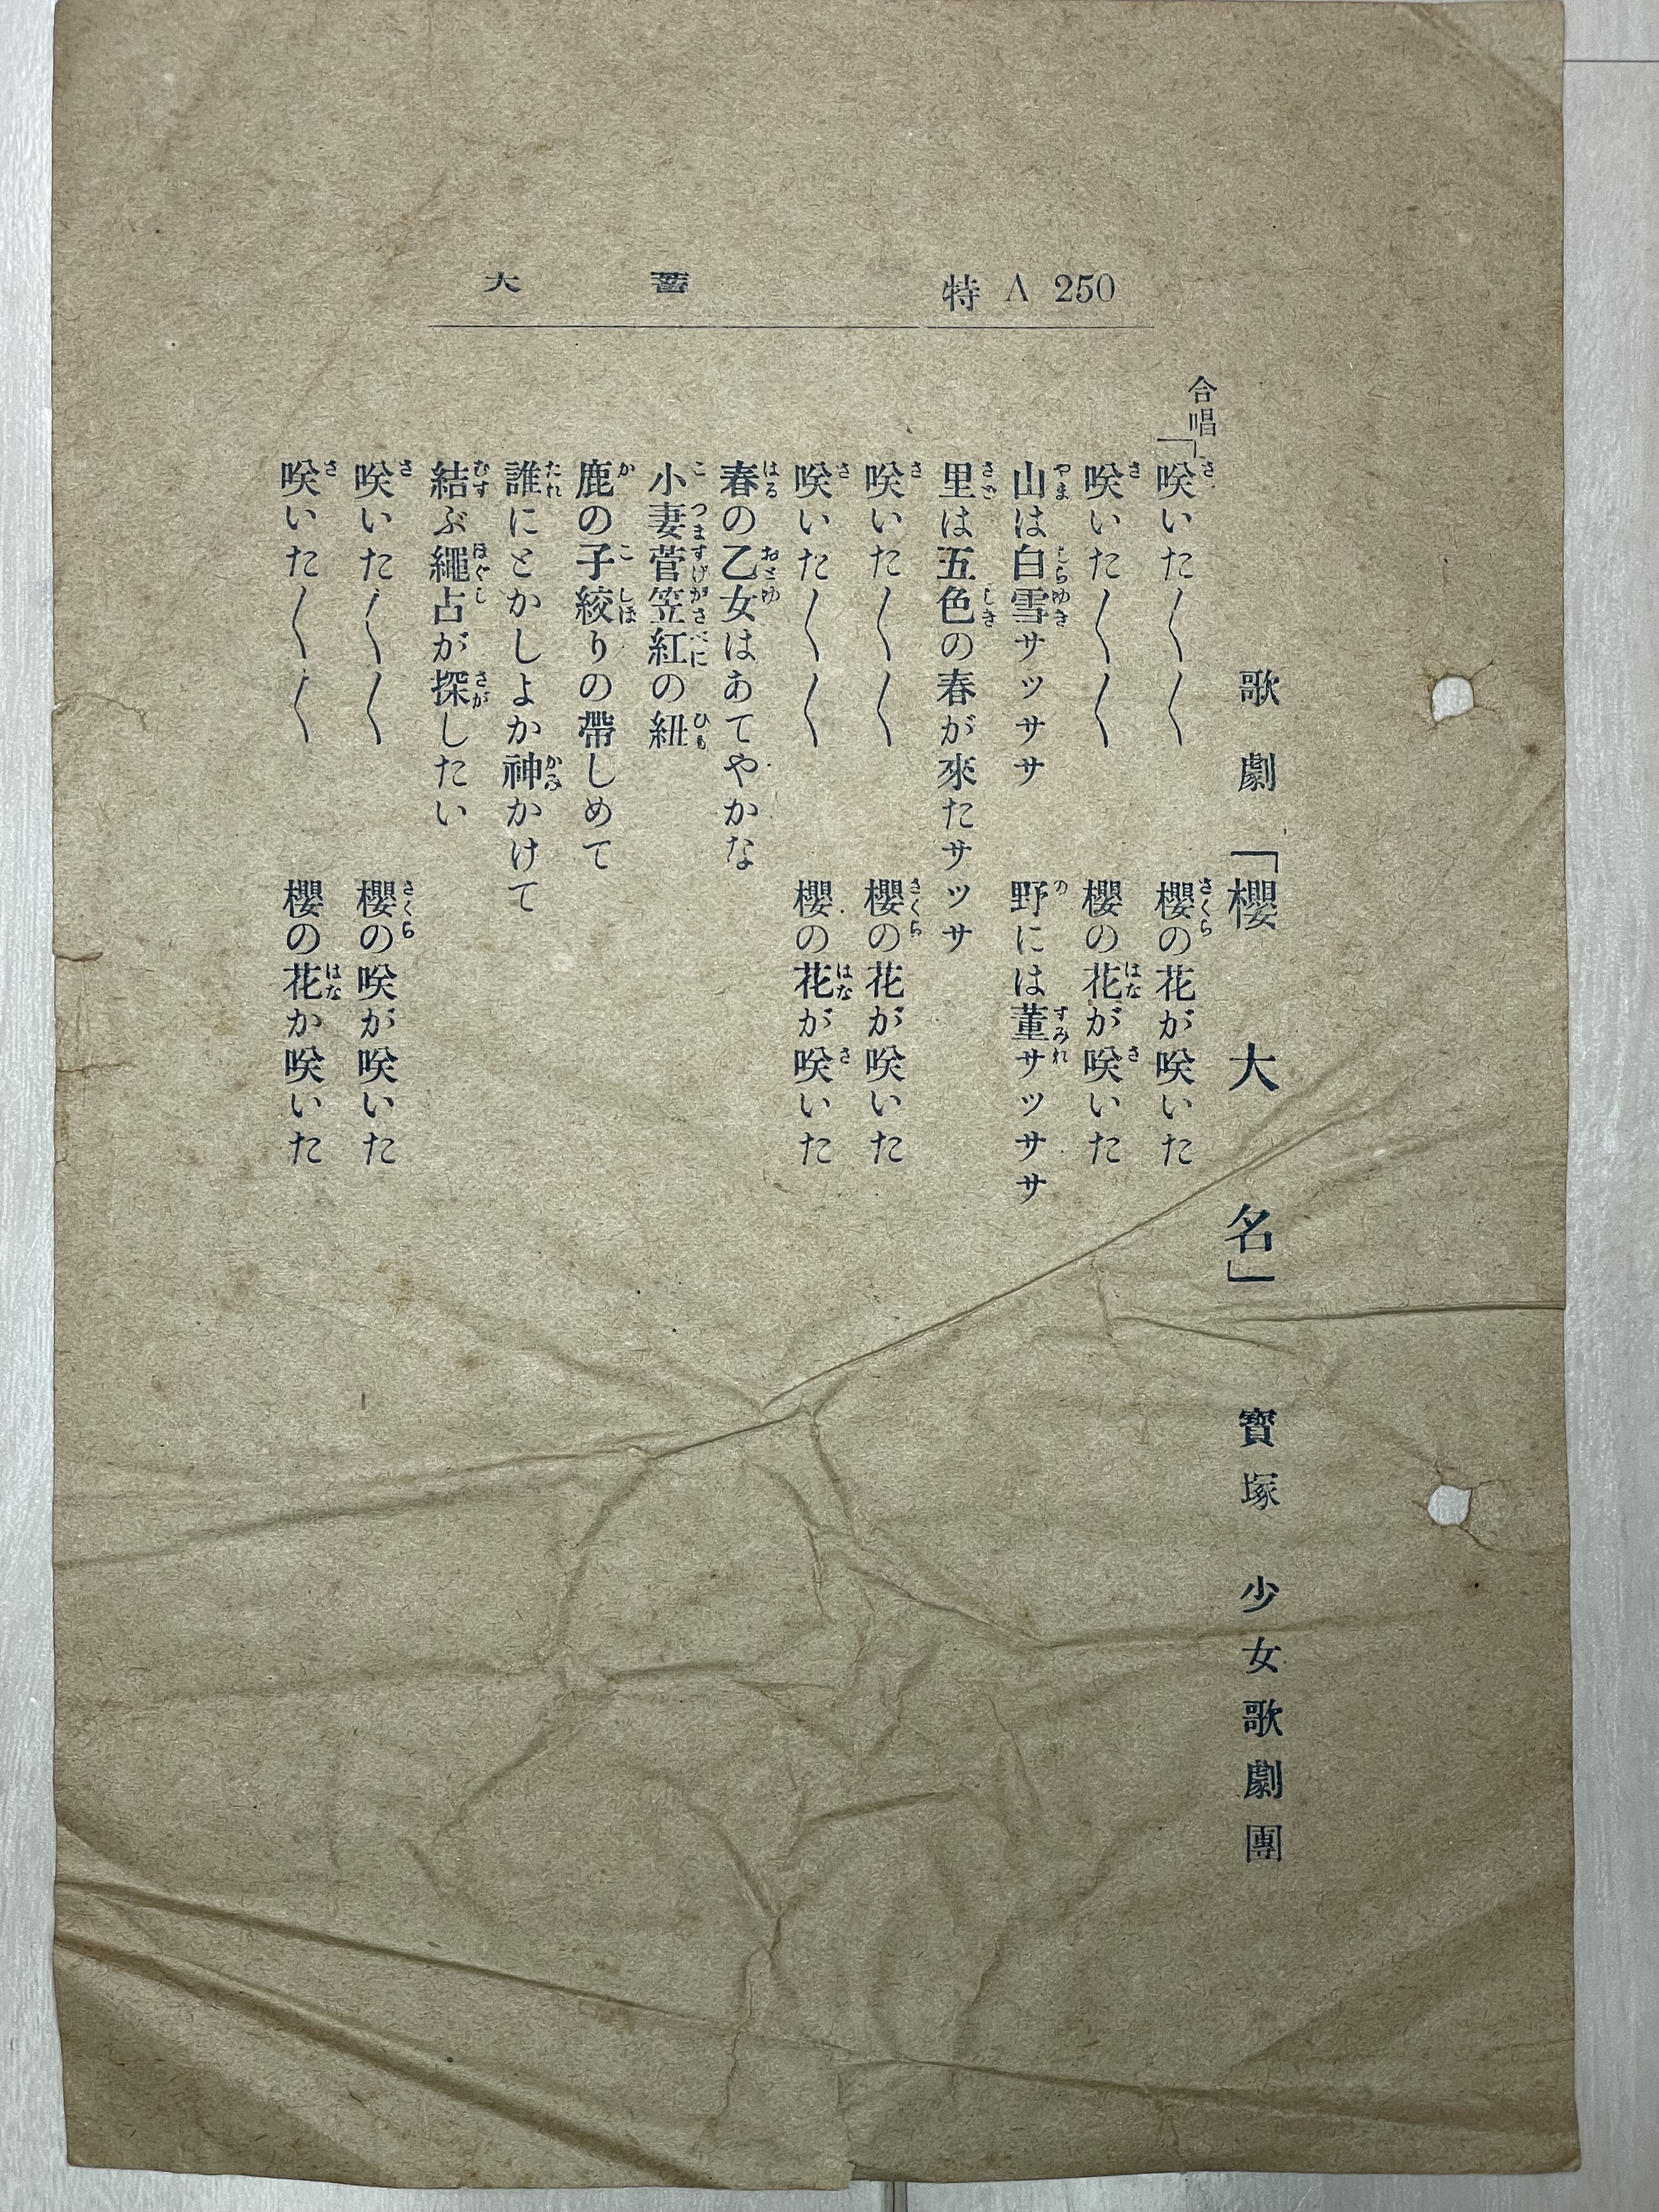 特 A 250
大蓄
歌劇「櫻大名」 寶塚少女歌劇團
合唱「咲いた〱〱 櫻の花が咲いた
咲いた〱〱 櫻の花が咲いた
山は白雪サッササ 野には菫サッササ
里は五色の春が來たサッサ
咲いた〱〱 櫻の花が咲いた
咲いた〱〱 櫻の花が咲いた
春の乙女はあてやかな
小妻菅笠紅の紐
鹿の子絞りの帶しめて
誰にとかしよか神かけて
結ぶ繩占が探したい
咲いた〱〱 櫻の咲が咲いた
咲いた〱〱 櫻の花か咲いた